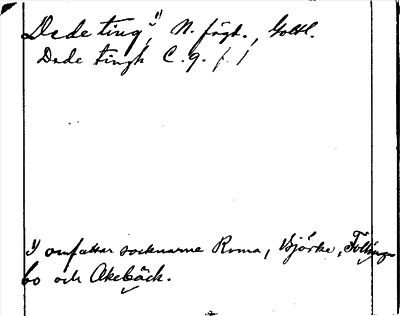 Dede ting, 1) N. fögd., Gottl.
Dede tingh C. 9. f. 1
1) omfattar socknarne Roma, Björke, Follingbo
bo och Akebäck.